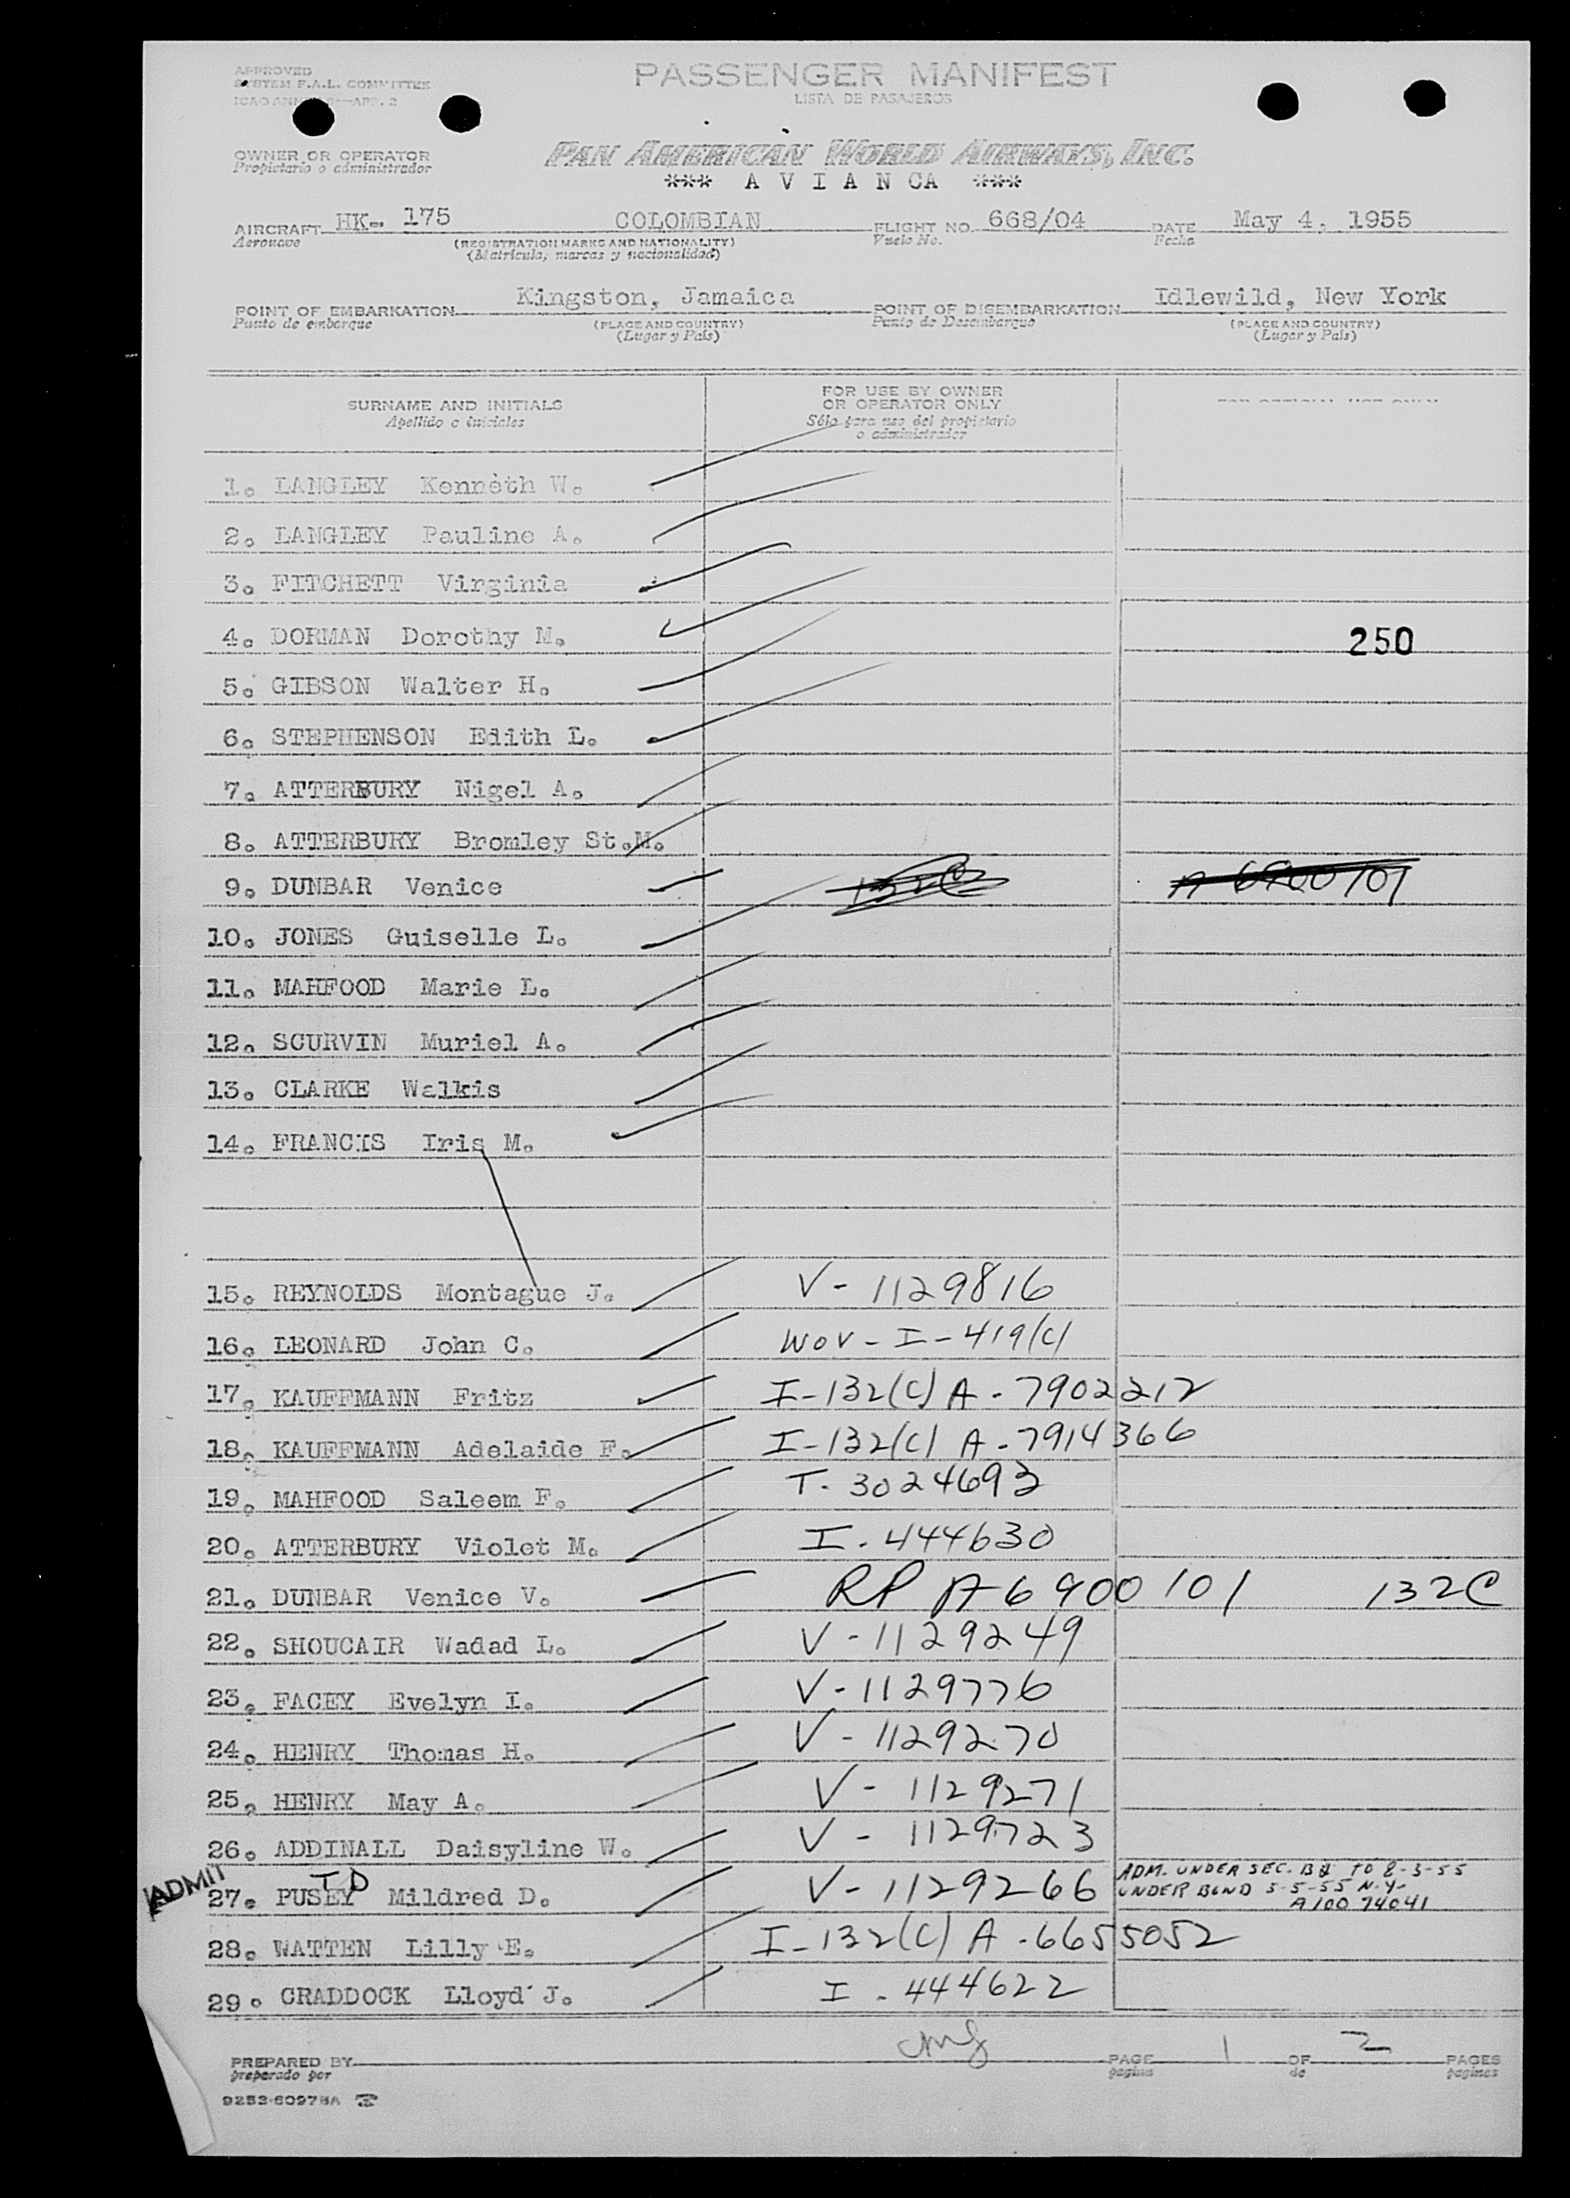 APPROVED
SYSTEM F.A.L. COMMITTEE
PASSENGER MANIFEST
LISTA DE PASAJEROS
OWNER OR OPERATOR
Propietario o administrador
PAN AMERICAN WORLD AIRWAYS, INC.
*** A V I A N CA ***
AIRCRAFT HK- 175 COLOMBIAN FLIGHT NO. 668/04 DATE May 4, 1955
Aeronave (REGISTRATION MARKS AND NATIONALITY) Vuelo No. Fecha
(Matrícula, marcas y nacionalidad)
POINT OF EMBARKATION Kingston, Jamaica POINT OF DISEMBARKATION Idlewild, New York
Punto de embarque (PLACE AND COUNTRY) Punto de Desembarque (PLACE AND COUNTRY)
(Lugar y País) (Lugar y País)
SURNAME AND INITIALS
Apellido e iniciales
FOR USE BY OWNER
OR OPERATOR ONLY
Sólo para uso del propietario
o administrador
1. LANGLEY Kenneth W.
2. LANGLEY Pauline A.
3. FITCHETT Virginia
4. DORMAN Dorothy M. 250
5. GIBSON Walter H.
6. STEPHENSON Edith L.
7. ATTERBURY Nigel A.
8. ATTERBURY Bromley St.M.
9. DUNBAR Venice 132C A 6900101
10. JONES Guiselle L.
11. MAHFOOD Marie L.
12. SCURVIN Muriel A.
13. CLARKE Walkis
14. FRANCIS Iris M.
15. REYNOLDS Montague J. V- 1129816
16. LEONARD John C. WOV-I-419(C)
17. KAUFFMANN Fritz I-132(C) A-7902212
18. KAUFFMANN Adelaide F. I-132(C) A-7914366
19. MAHFOOD Saleem F. T-3024693
20. ATTERBURY Violet M. I-444630
21. DUNBAR Venice V. RP A6900101 132C
22. SHOUCAIR Wadad L. V-1129249
23. FACEY Evelyn I. V-1129776
24. HENRY Thomas H. V-1129270
25. HENRY May A. V- 1129271
26. ADDINALL Daisyline W. V- 1129723
ADMIT TD ADM. UNDER SEC. B2 TO 8-3-55
27. PUSEY Mildred D. V-1129266 UNDER BOND 5-5-55 N.Y.
A100 74041
28. WATTEN Lilly E. I-132(C) A-6655052
29. CRADDOCK Lloyd J. I-444622
PREPARED BY PAGE 1 OF 2 PAGES
preparado por pagina de paginas
9253-60978A